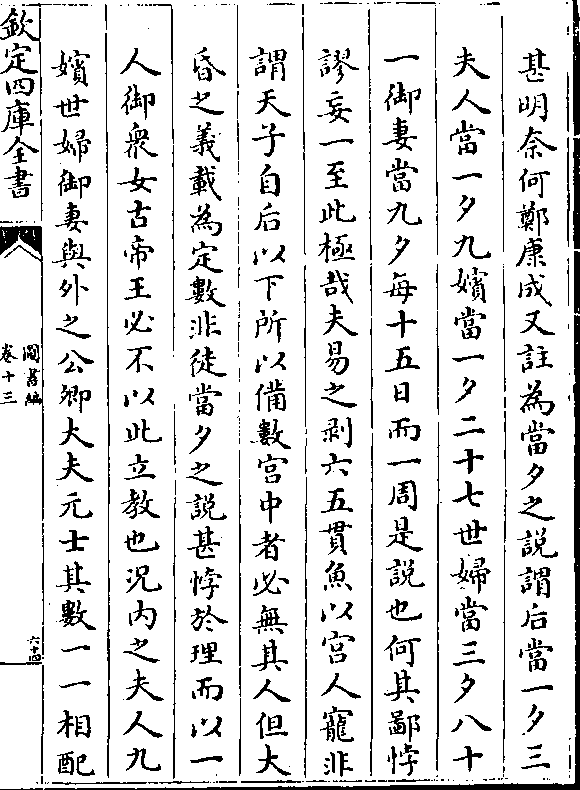 甚明奈何鄭康成又註為當夕之說謂后當一夕三
夫人當一夕九嬪當一夕二十七世婦當三夕八十
一御妻當九夕每十五日而一周是說也何其鄙悖
謬妄一至此極哉夫易之剥六五貫魚以宫人寵非
謂天子自后以下所以備數宫中者必無其人但大
昏之義載為定數非徒當夕之說甚悖於理而以一
人御衆女古帝王必不以此立教也況内之夫人九
嬪世婦御妻與外之公卿大夫元士其數一一相配
欽定四庫全書
圖書編
卷十三
六十四